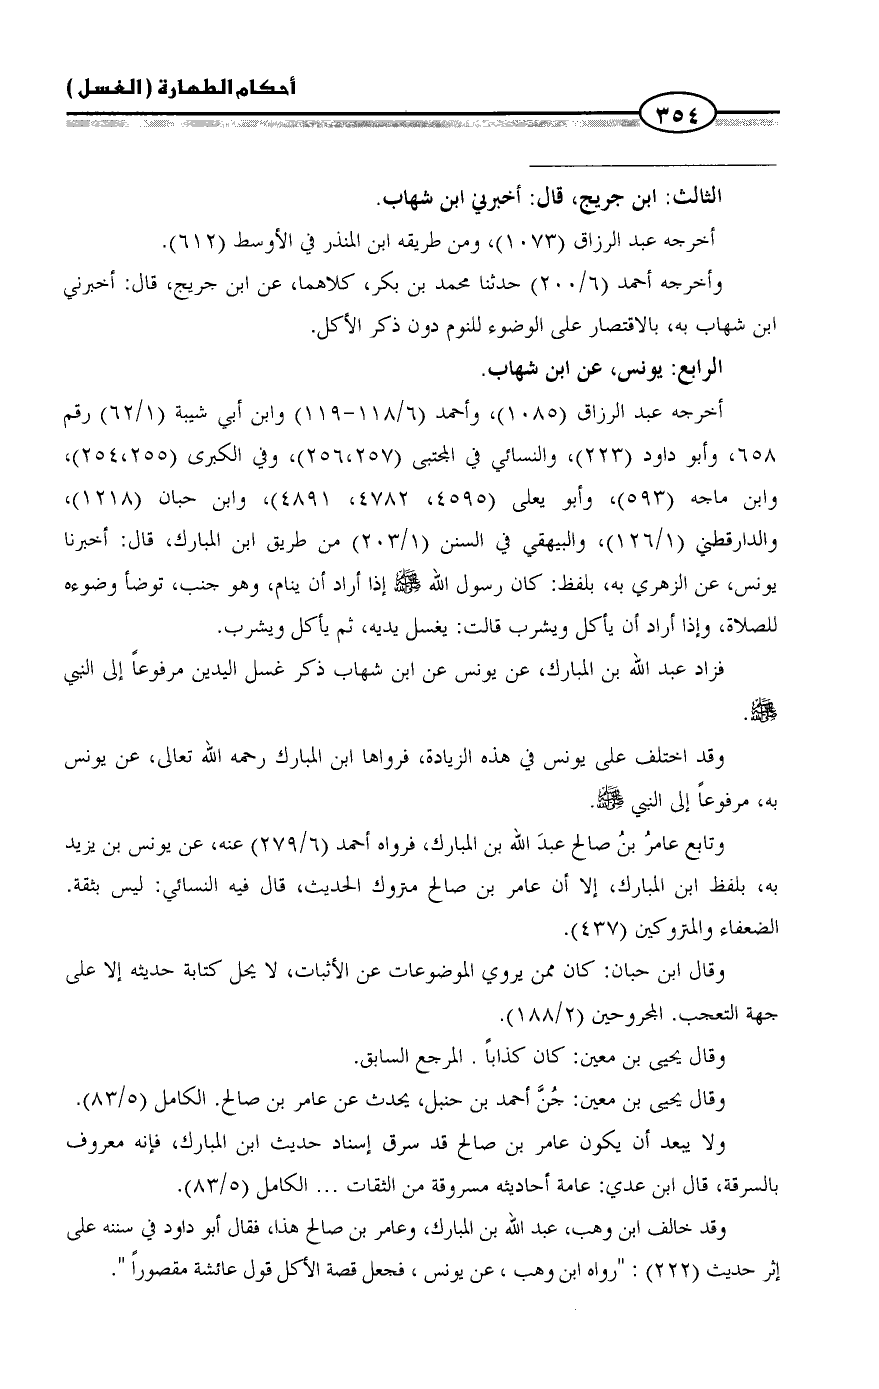 أحكام الطهارة (الغسل)
٣٥٤
الثالث: ابن جريج، قال: أخبرني ابن شهاب.
أخرجه عبد الرزاق (١٠٧٣)، ومن طريقه ابن المنذر في الأوسط (٦١٢).
وأخرجه أحمد (٢٠٠/٦) حدثنا محمد بن بكر، كلاهما، عن ابن جريج، قال: أخبرني
ابن شهاب به، بالاقتصار على الوضوء للنوم دون ذكر الأكل.
الرابع: يونس، عن ابن شهاب.
أخرجه عبد الرزاق (١٠٨٥)، وأحمد (١١٨/٦-١١٩) وابن أبي شيبة (٦٢/١) رقم
٦٥٨، وأبو داود (٢٢٣)، والنسائي في المجتبى (٢٥٦،٢٥٧)، وفي الكبرى (٢٥٤،٢٥٥)،
وابن ماجه (٥٩٣)، وأبو يعلى (٤٥٩٥، ٤٧٨٢، ٤٨٩١)، وابن حبان (١٢١٨)،
والدارقطني (١٢٦/١)، والبيهقي في السنن (٢٠٣/١) من طريق ابن المبارك، قال: أخبرنا
يونس، عن الزهري به، بلفظ: كان رسول الله ﷺ إذا أراد أن ينام، وهو جنب، توضأ وضوءه
للصلاة، وإذا أراد أن يأكل ويشرب قالت: يغسل يديه، ثم يأكل ويشرب.
فزاد عبد الله بن المبارك، عن يونس عن ابن شهاب ذكر غسل اليدين مرفوعاً إلى النبي
ﷺ.
وقد اختلف على يونس في هذه الزيادة، فرواها ابن المبارك رحمه الله تعالى، عن يونس
به، مرفوعاً إلى النبي ﷺ.
وتابع عامرُ بنُ صالح عبدَ الله بن المبارك، فرواه أحمد (٢٧٩/٦) عنه، عن يونس بن يزيد
به، بلفظ ابن المبارك، إلا أن عامر بن صالح متروك الحديث، قال فيه النسائي: ليس بثقة.
الضعفاء والمتروكين (٤٣٧).
وقال ابن حبان: كان ممن يروي الموضوعات عن الأثبات، لا يحل كتابة حديثه إلا على
جهة التعجب. المجروحين (١٨٨/٢).
وقال يحيى بن معين: كان كذاباً . المرجع السابق.
وقال يحيى بن معين: جُنَّ أحمد بن حنبل، يحدث عن عامر بن صالح. الكامل (٨٣/٥).
ولا يبعد أن يكون عامر بن صالح قد سرق إسناد حديث ابن المبارك، فإنه معروف
بالسرقة، قال ابن عدي: عامة أحاديثه مسروقة من الثقات ... الكامل (٨٣/٥).
وقد خالف ابن وهب، عبد الله بن المبارك، وعامر بن صالح هذا، فقال أبو داود في سننه على
إثر حديث (٢٢٢) : "رواه ابن وهب ، عن يونس ، فجعل قصة الأكل قول عائشة مقصوراً ".